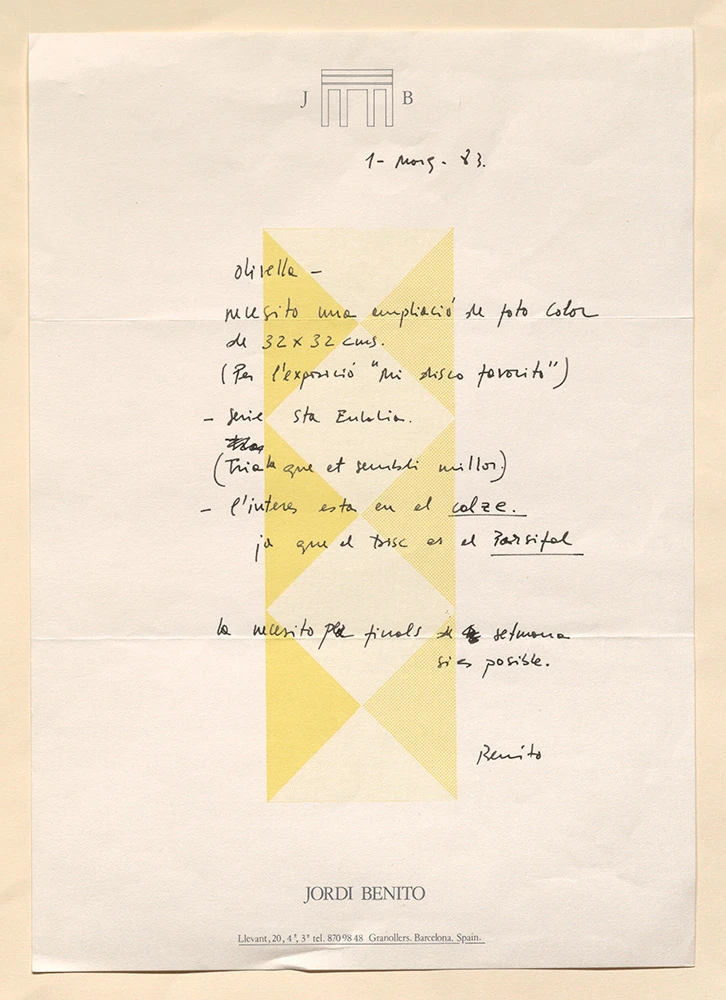 J B
1- Març - 83.
Olivella -
necesito una ampliació de foto color
de 32 x 32 cms.
(Per l'exposició "Mi disco favorito")
- Serie Sta Eulalia.
(Tria la que et sembli millor.)
- l'interes esta en el calze.
ja que el Disc es el Parsifal
la necesito per finals de setmana
si es posible.
Benito
JORDI BENITO
Llevant, 20, 4º, 3ª tel. 870 98 48 Granollers. Barcelona. Spain.